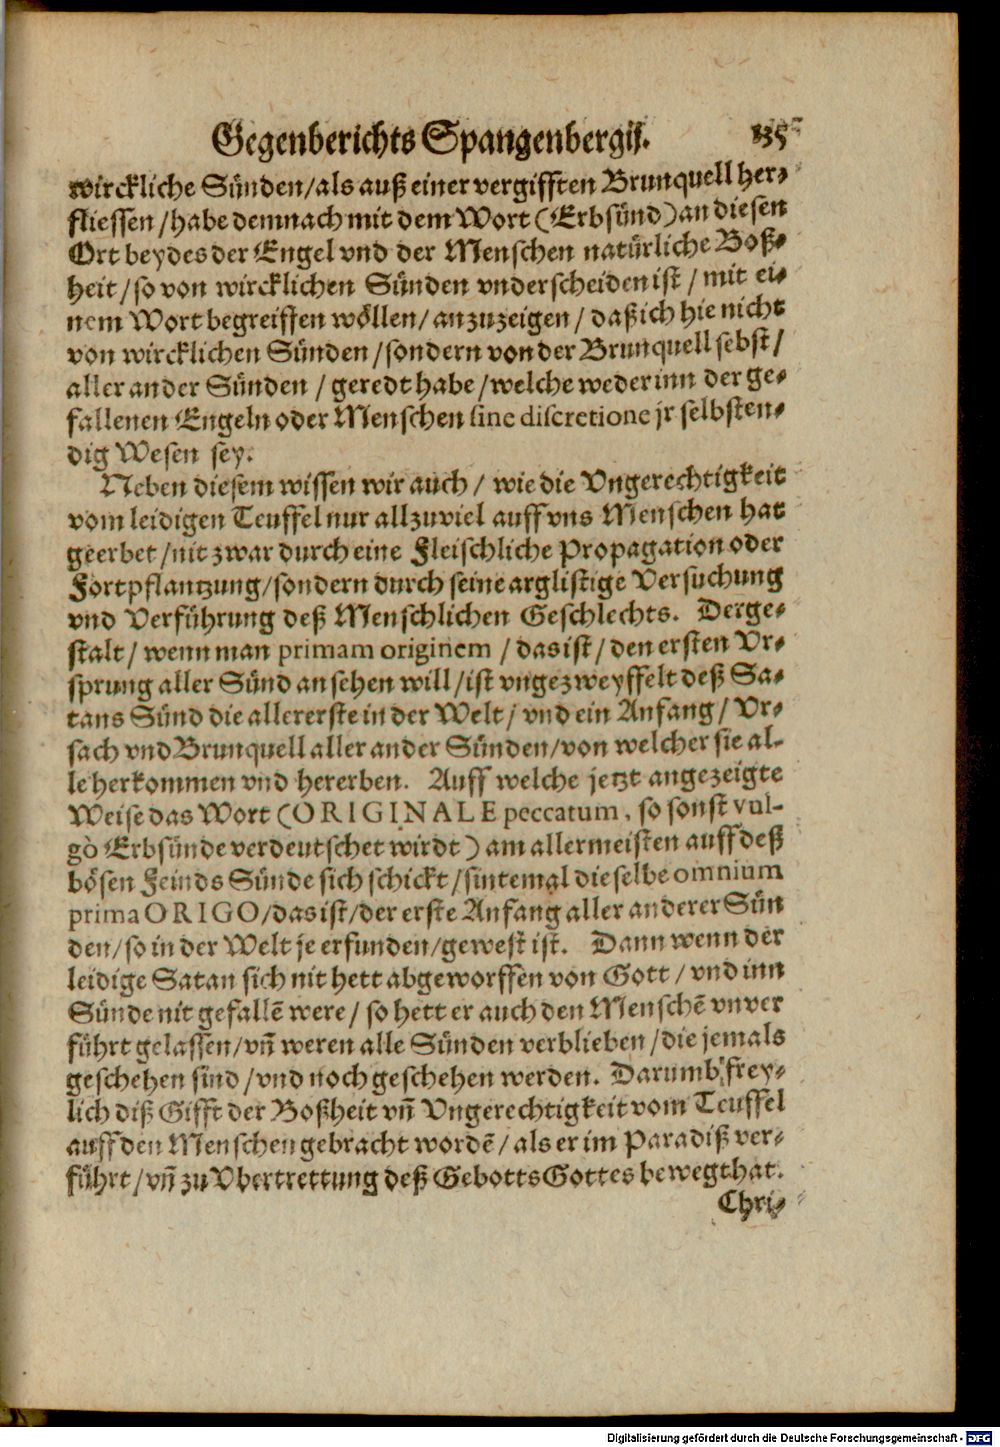 Gegenberichts Spangenbergij. 135
wirckliche Sünden/als auß einer vergifften Brunquell her-
fliessen/habe demnach mit dem Wort (Erbsünd) an diesen
Ort beydes der Engel vnd der Menschen natürliche Boß-
heit/so von wircklichen Sünden vnderscheiden ist/mit ei-
nem Wort begreiffen wöllen/anzuzeigen/daß ich hie nicht
von wircklichen Sünden/sondern von der Brunquell sebst/
aller ander Sünden/geredt habe/welche weder inn der ge-
fallenen Engeln oder Menschen sine discretione jr selbsten-
dig Wesen sey.
Neben diesem wissen wir auch/wie die Vngerechtigkeit
vom leidigen Teuffel nur allzuviel auff vns Menschen hat
geerbet/nit zwar durch eine Fleischliche Propagation oder
Fortpflantzung/sondern durch seine arglistige Versuchung
vnd Verführung deß Menschlichen Geschlechts. Derge-
stalt/wenn man primam originem/das ist/den ersten Vr-
sprung aller Sünd ansehen will/ist vngezweyffelt deß Sa-
tans Sünd die allererste in der Welt/vnd ein Anfang/Vr-
sach vnd Brunquell aller ander Sünden/von welcher sie al-
le herkommen vnd hererben. Auff welche jetzt angezeigte
Weise das Wort (ORIGINALE peccatum, so sonst vul-
gò Erbsünde verdeutschet wirdt) am allermeisten auff deß
bösen Feinds Sünde sich schickt/sintemal dieselbe omnium
prima ORIGO/das ist/der erste Anfang aller anderer Sün
den/so in der Welt je erfunden/gewest ist. Dann wenn der
leidige Satan sich nit hett abgeworffen von Gott/vnd inn
Sünde nit gefallē were/so hett er auch den Menschē vnver
führt gelassen/vñ weren alle Sünden verblieben/die jemals
geschehen sind/vnd noch geschehen werden. Darumb frey-
lich diß Gifft der Boßheit vñ Vngerechtigkeit vom Teuffel
auff den Menschen gebracht wordē/als er im Paradiß ver-
führt/vñ zu Vbertrettung deß Gebotts Gottes bewegt hat.
Chri-
Digitalisierung gefördert durch die Deutsche Forschungsgemeinschaft - DFG